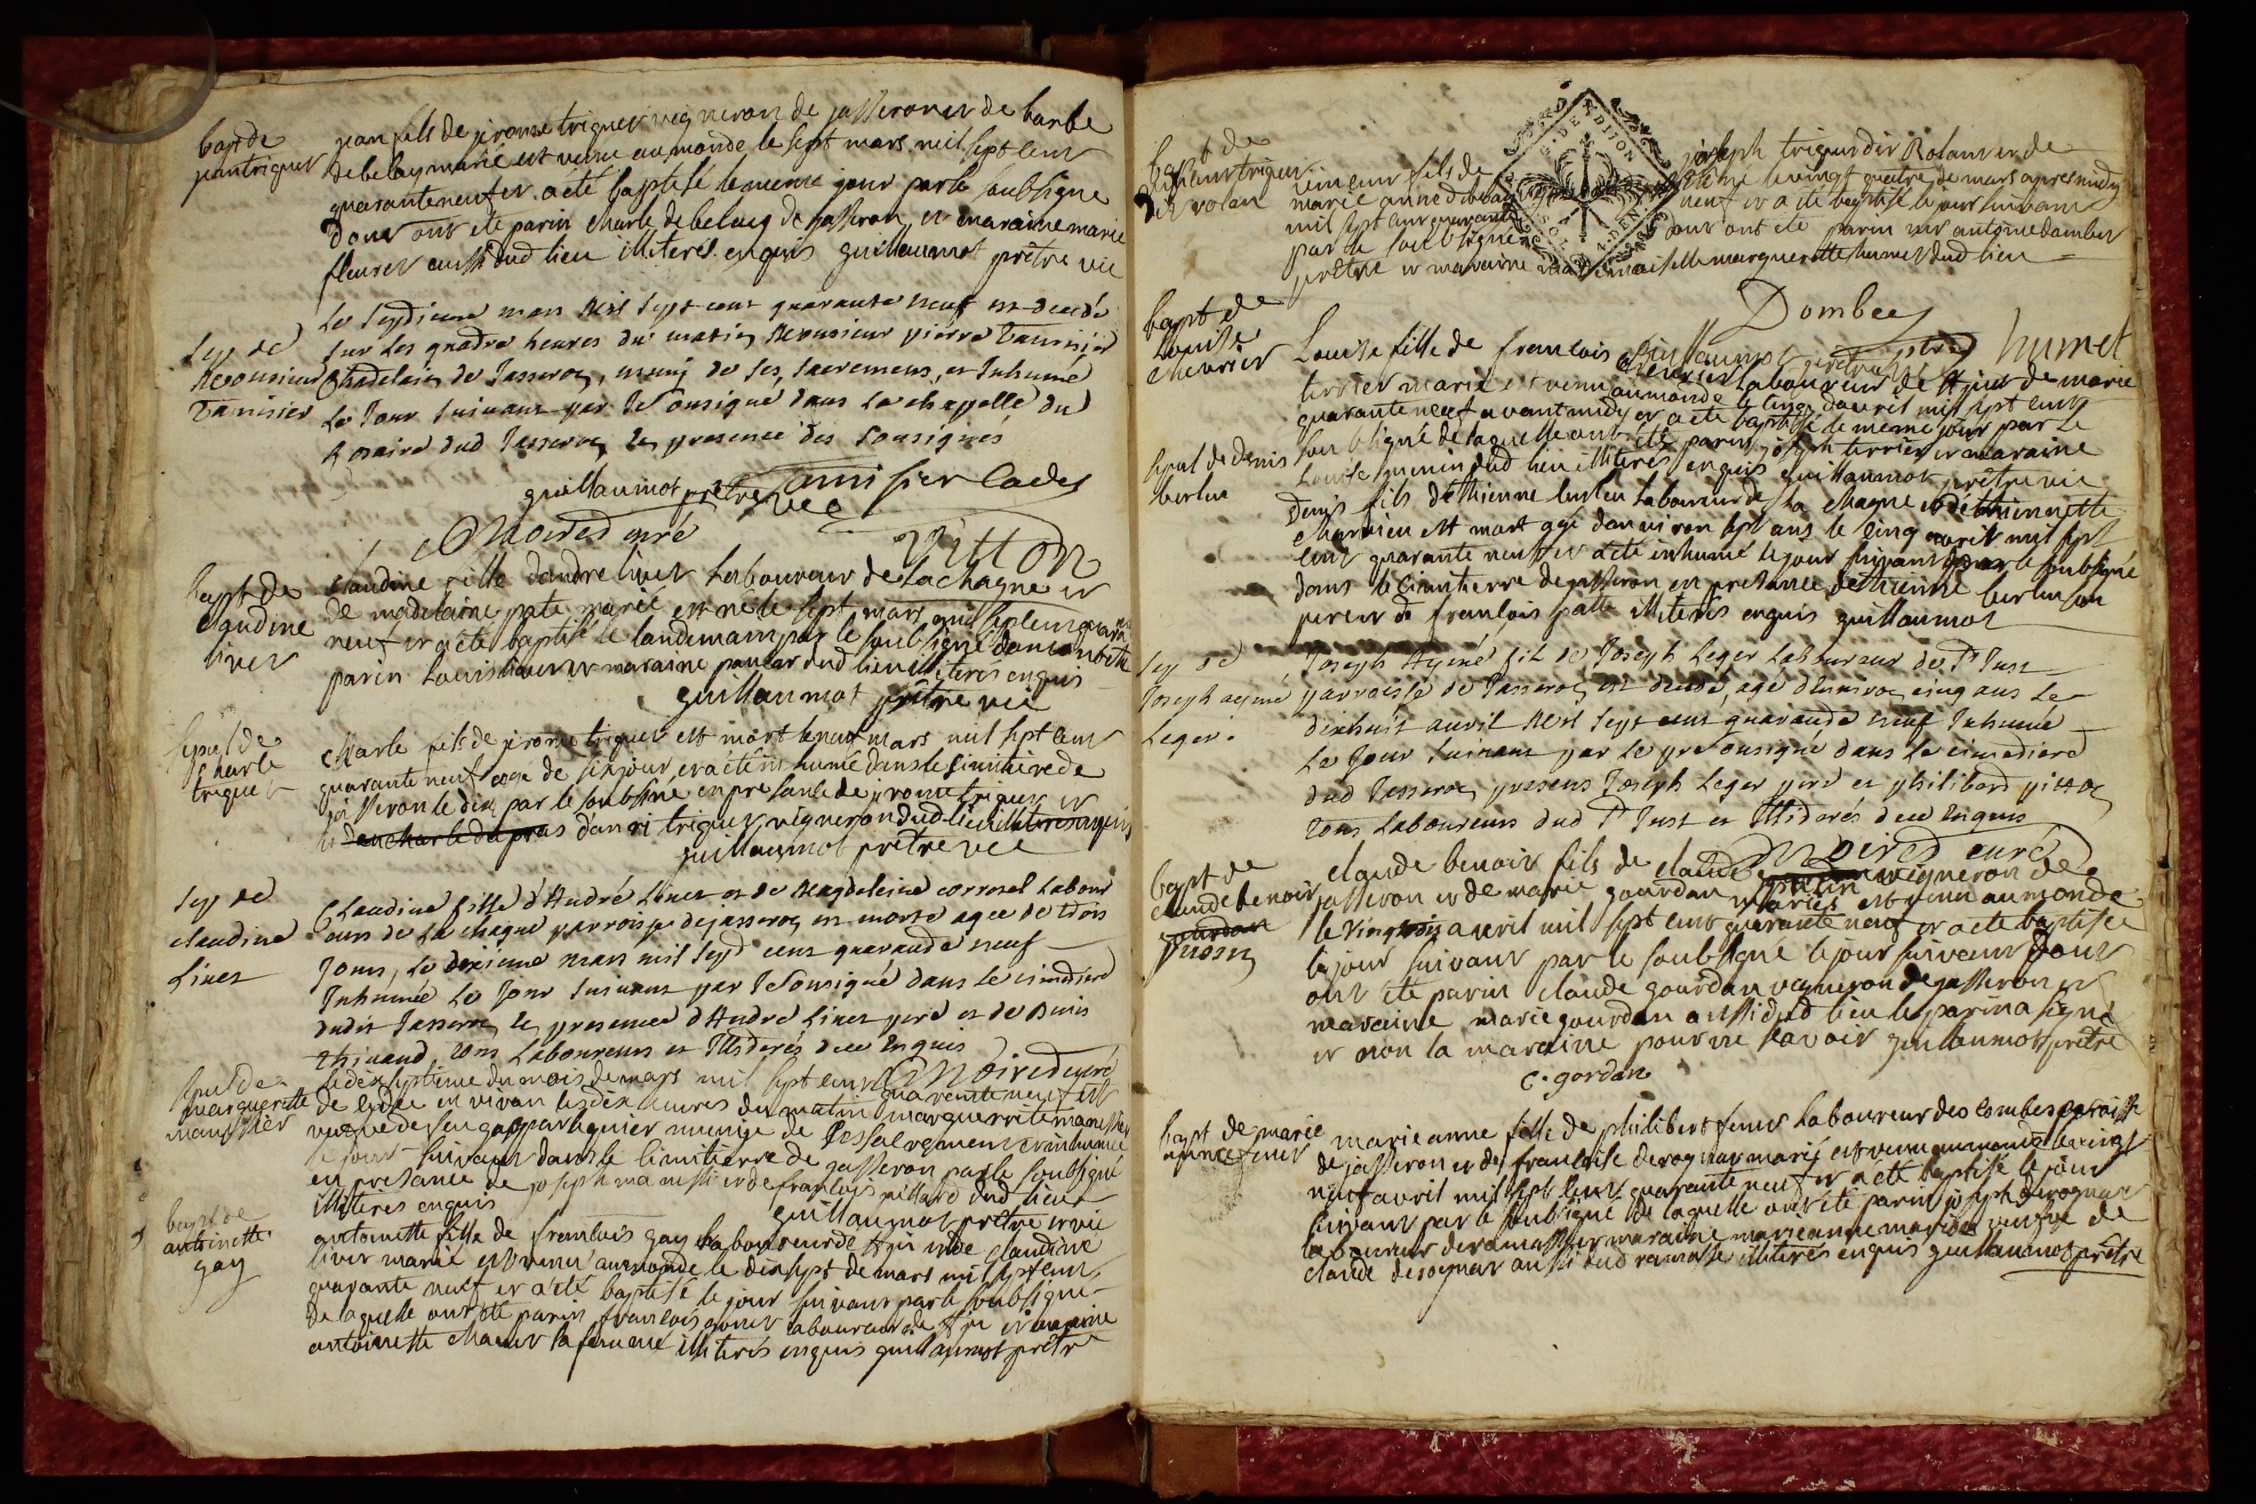 bapt de
jean triquet
jean fils de jirome triquet vigneron de jasseron et de barbe
debelay marié est venu au monde le sept mars mil sept cent
quarante neuf et a été baptisé le meme jour par le soubsigné
dont ont ete parin charle debelay de jasseron et maraine marie
fleuret aussi dud lieu illiterés enquis guillaumot prêtre vic
sep de
Monsieur
Tamisier
Le seizieme mars Mil sept cent quarante neuf est decedé
sur les quatre heures du matin Monsieur pierre Tamisier
Chatelain de Jasseron, muny de ses sacremens, et Inhumé
Le Jour suivant par le sousigné dans la chapelle du
Rosaire dud Jasseron En presence des sousignés
guillaumot prêtre vic Tamisier Cadet
Moired curé
Vitton
bapt de
claudine
livet
claudine fille d'andre livet Laboureur de La chagne et
de madelaine pate marié est né le sept mars mil sept cent quara
neuf et a été baptisé le landemain par le soubsigné dont ont été
parin Louis et maraine dud lieu illiterés enquis
guillaumot prêtre vic
sepul de
charle
triquet
charle fils de jirome triquet est mort le neuf mars mil sept cent
quarante neuf agé de six jour et a été inhumé dans le simitiere de
jasseron le dix par le soubsiné en presante de jirome triquet et
d'anri triquet vigneron dud lieu illiteres enquis
guillaumot prêtre vic
sep de
claudine
Livet
Claudine fille d'André Livet et de Magdeleine Labour
eurs de La chagne parroisse de jasseron est morte agée de trois
Jours, Le dixieme mars mil sept cent quarante neuf
Inhumée Le Jour suivant par le sousigné dans Le cimetiere
dudit Jasseron En presence d'André Livet pere et de Denis
thivaud, tous Laboureurs et Illiterés de ce Enquis
Moired curé
sepul de
marguerette
manissier
Le dix septieme du mois de mars mil sept cent quarante neuf est
de cedée en viron les dix heures du matin marguerrite manissier
veuve de feu gaspar munije de et inhumée
le jour suivant dans le cimitierre de jasseron par le soubsigné
en presance de joseph manissier de francois millard dud lieu
illiteres enquis guillaumot prêtre et vic
bapt de
antoinette
gay
antoinette fille de francois gay Laboureur de et de claudine
livet marié est venu au monde le dix sept de mars mil sept cent
quarante neuf et a été baptisé le jour suivant par le soubsigné
de laquelle ont été parin francois laboureur de et maraine
antoinette sa femme illiterés enquis guillaumot prêtre
bapt de
vincent triquet
dit rolan
vincent fils de joseph triquet dit Rolant et de
marie anne debelay né le vingt quatre de mars apres midy
mil sept cent quarante neuf et a été baptisé le jour suivant
par le soubsigné dont ont été parin mr antoine dombet
prêtre et maraine mademoiselle marguerette humet dud lieu
G. DE DIJON
SOL
4. DEN
Dombey
humet
guillaumot prêtre vic
bapt de
Louise
chevrier
Louise fille de francois chevrier laboureur de et de marie
terrier marié est venu au monde le cinq d'avril mil sept cent
quarante neuf avant midy et a été baptisé le meme jour par le
soubsigné de laquelle ont été parin joseph terrier et maraine
Louise dud lieu illiterés enquis guillaumot prêtre vic
sepul de denis
berlin
Denis fils d'éthienne Laboureur de La chagne et d'éthiennette
est mort agé d'anviron sept ans le cinq avril mil sept
cent quarante neuf et a été inhumé le jour suivant par le soubsigné
dans le cimitierre de jasseron en presance d'ethienne son
pere et de francois patte illiterés enquis guillaumot
sep de
Joseph aymé
Leger.
Joseph Aymé fils de Joseph Leger Laboureur de St Just
parroisse de Jasseron est decedé, agé d'Environ cinq ans Le
dixhuit avril Mil sept cent quarante neuf Inhumé
Le Jour suivant par Le pre sousigné dans Le cimetiere
dud Jasseron presens Joseph Leger pere et philibert pitton
tous Laboureurs dud St Just et Illiterés de ce Enquis
Moired curé
bapt de
claude benoit
gourdan
claude benoit fils de claude vigneron de
jasseron et de marie gourdan mariés est venu au monde
le vingt avril mil sept cent quarante neuf et a été baptisée
le jour suivant par le soubsigné le jour suivant dont
ont été parin claude gourdan vigneron de jasseron et
maraine marie gourdan aussi dud lieu le parin a signé
et non la maraine pour ne savoir guillaumot prêtre
c. gordan
bapt de marie
anne
marie anne fille de philibert laboureur des combes paroisse
de jasseron et de francoise derognat mariés est venu au monde le vingt
neuf avril mil sept cent quarante neuf et a été baptisé le jour
suivant par le soubsigné de laquelle ont été parin joseph derognat
laboureur de ramasse et maraine marie anne veufve de
claude derognat aussi dud ramasse illiterés enquis guillaumot prêtre